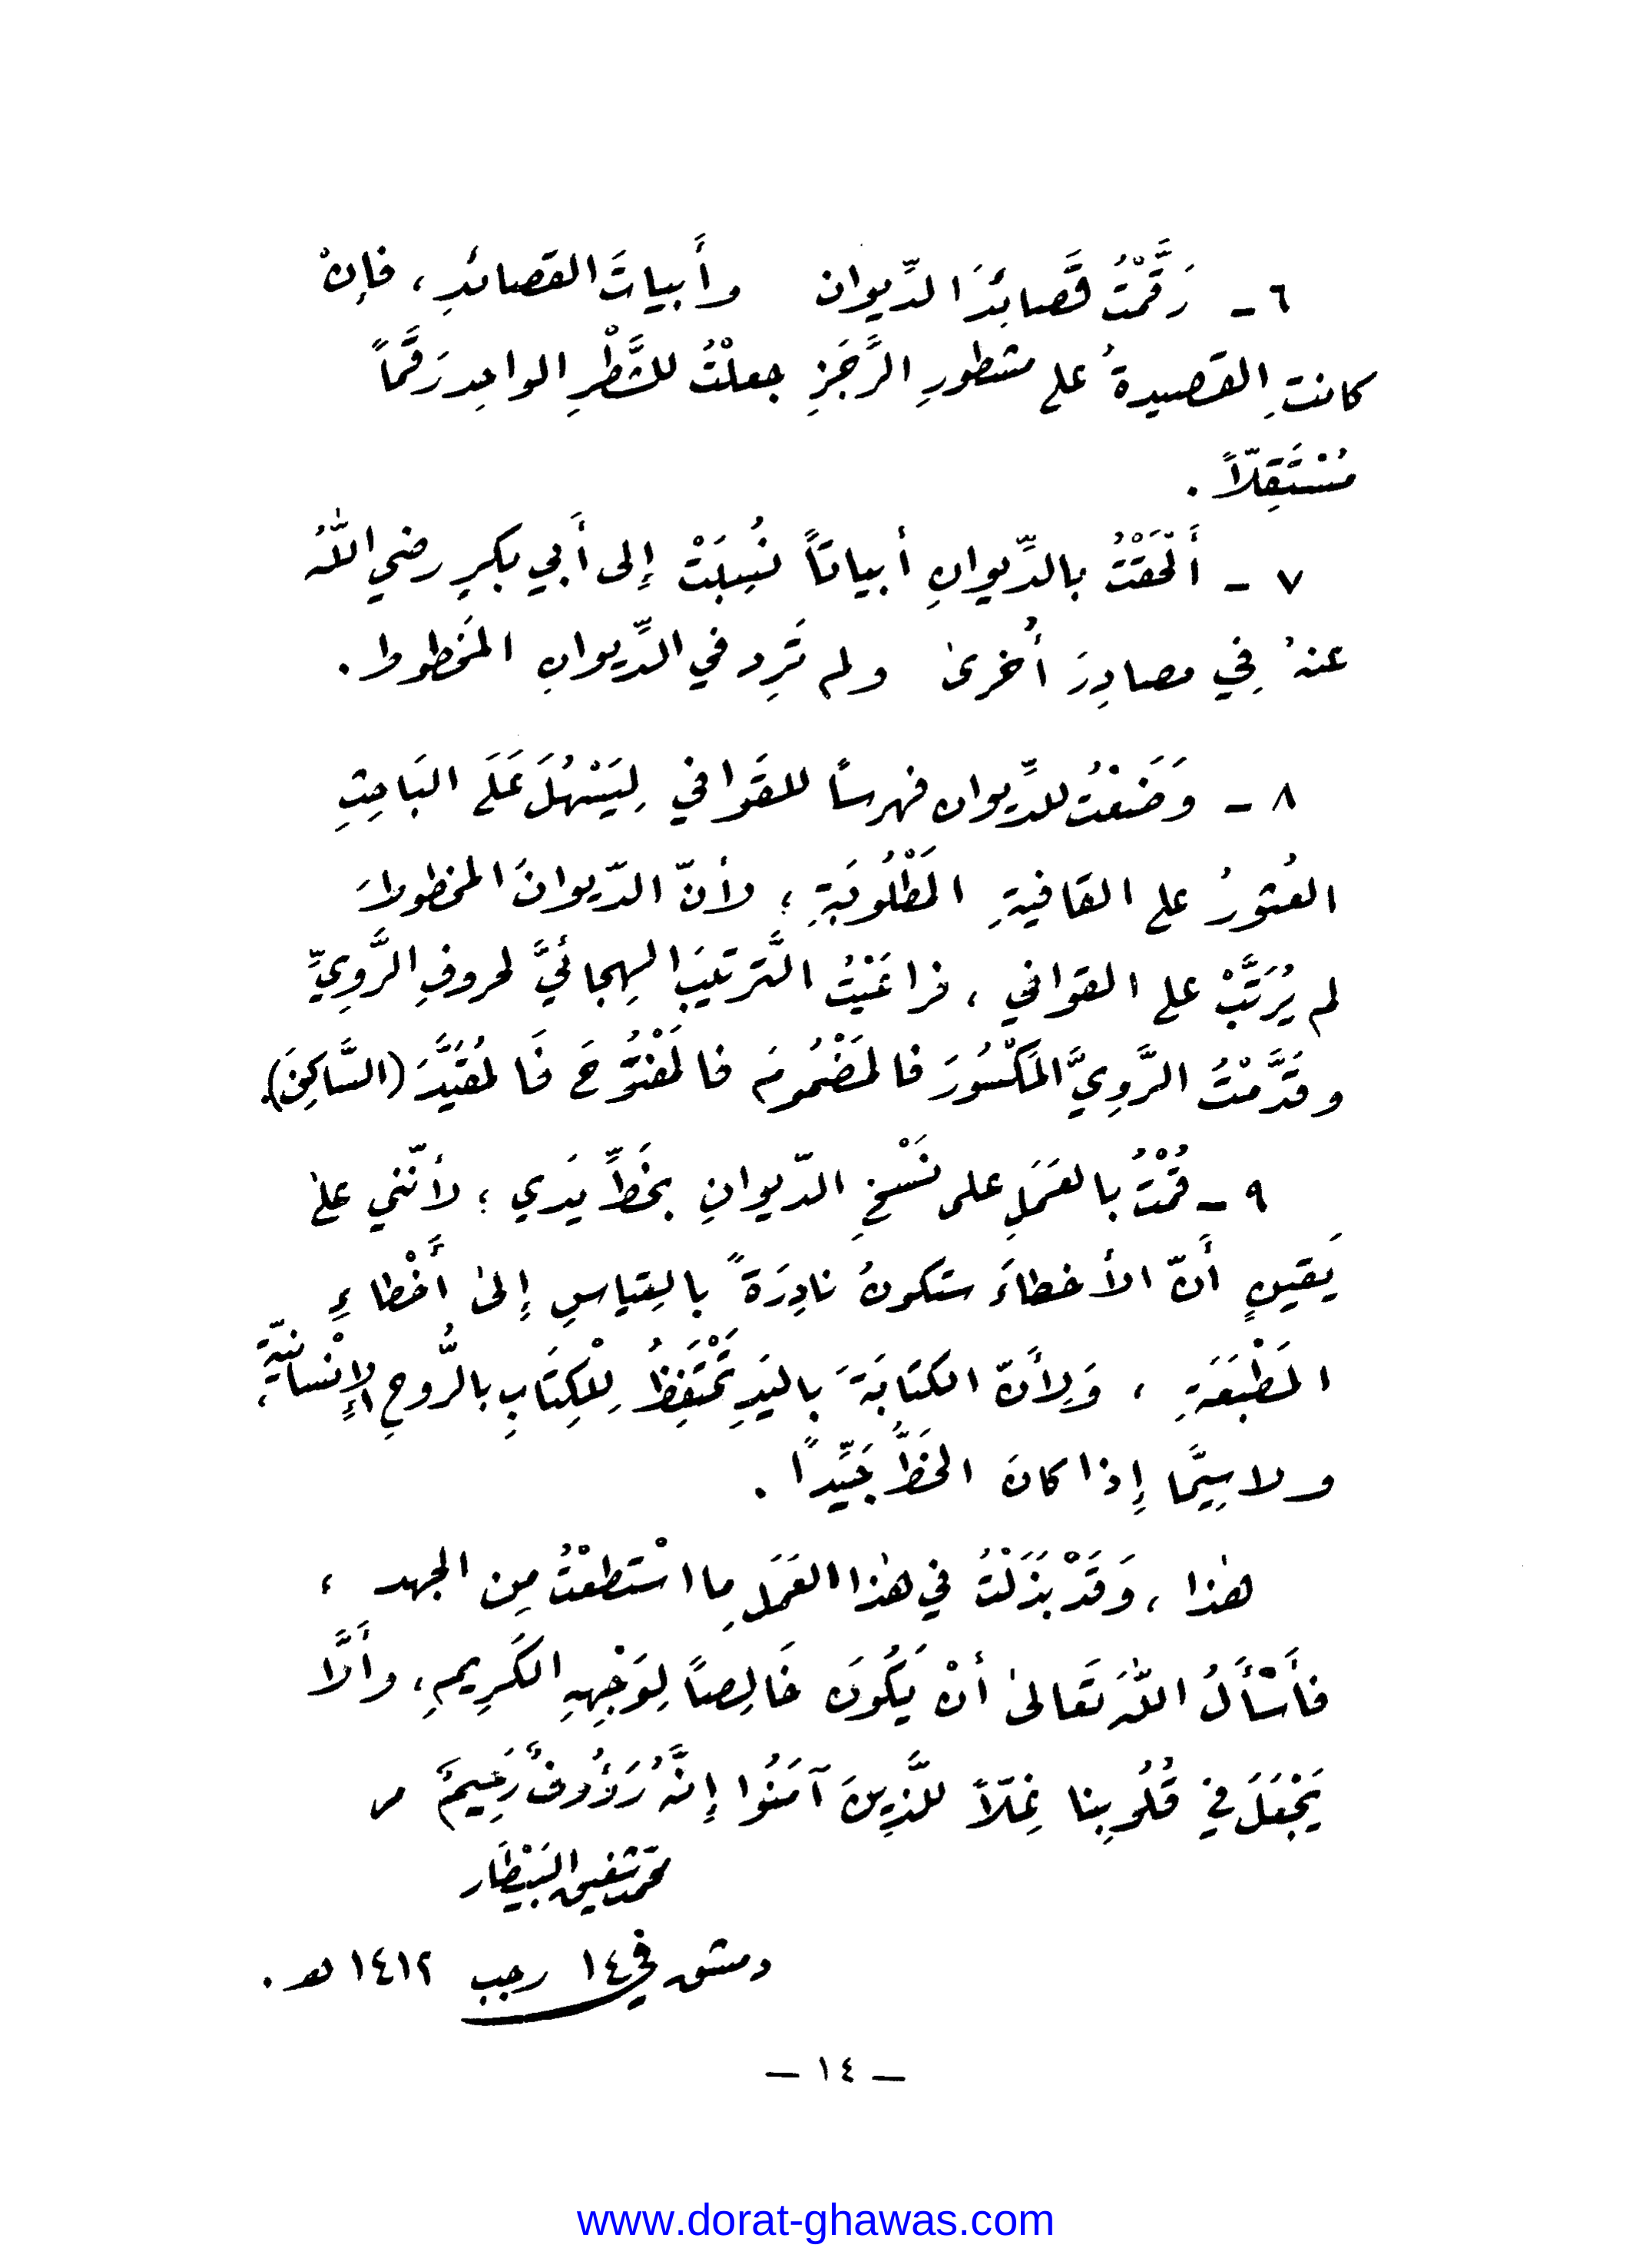 ٦ - رَقَّمْتُ قَصائِدَ الدِّيوان وأَبياتَ القصائدِ ، فإنْ
كانتِ القصيدةُ على مشطورِ الرَّجَزِ جعلْتُ للشَّطْرِ الواحِد رَقَماً
مُسْتَقِلّاً .
٧ - أَلْحَقْتُ بالدِّيوانِ أبياتاً نُسِبَتْ إلى أَبي بكرٍ رضي اللهُ
عنهُ فِي مصادِرَ أُخرىٰ ولم تَرِد في الدِّيوانِ المخَطوط .
٨ - وَضَعْتُ للدِّيوان فهرساً للقَوافي لِيَسْهُلَ عَلَى البَاحِثِ
العُثورُ على القافيةِ المَطْلُوبَةِ ؛ لأنّ الدّيوانَ المخطوطَ
لم يُرَتَّبْ على القوافي ، فراعَيْتُ التَّرتيبَ الهِجائيَّ لحروفِ الرَّوِيِّ
وقَدَّمْتُ الرَّوِيَّ المَكْسُورَ فالمَضْمُومَ فالمَفْتُوحَ فَالمُقَيَّدَ (السَّاكِنَ).
٩ - قُمْتُ بالعَمَلِ على نَسْخِ الدّيوانِ بخَطِّ يَدي ؛ لأنّني علىٰ
يَقينٍ أَنّ الأخطاءَ ستكونُ نادِرَةً بالقِياسِ إلىٰ أَخْطاءِ
المَطْبَعَةِ ، وَلِأَنّ الكتَابَةَ بالْيَدِ تَحْتَفِظُ لِلْكِتَابِ بالرُّوحِ الإِنْسانيّةِ ،
ولا سِيَّما إِذا كانَ الخَطُّ جَيِّداً .
هٰذا ، وَقَدْ بَذَلْتُ في هٰذا العَمَلِ ما اسْتطعْتُ مِن الجهد ،
فأَسْأَلُ اللهَ تَعالىٰ أنْ يَكُونَ خَالِصاً لِوَجْهِهِ الكَرِيمِ ، وأَلَّا
يَجْعَلَ في قُلُوبِنا غِلّاً للَّذِينَ آمَنُوا إِنَّهُ رَؤُوفٌ رَحِيمٌ
محمّد شفيق البَيْطَار
دمشق في ١٤ رجب ١٤١٢ هـ .
— ١٤ —
www.dorat-ghawas.com